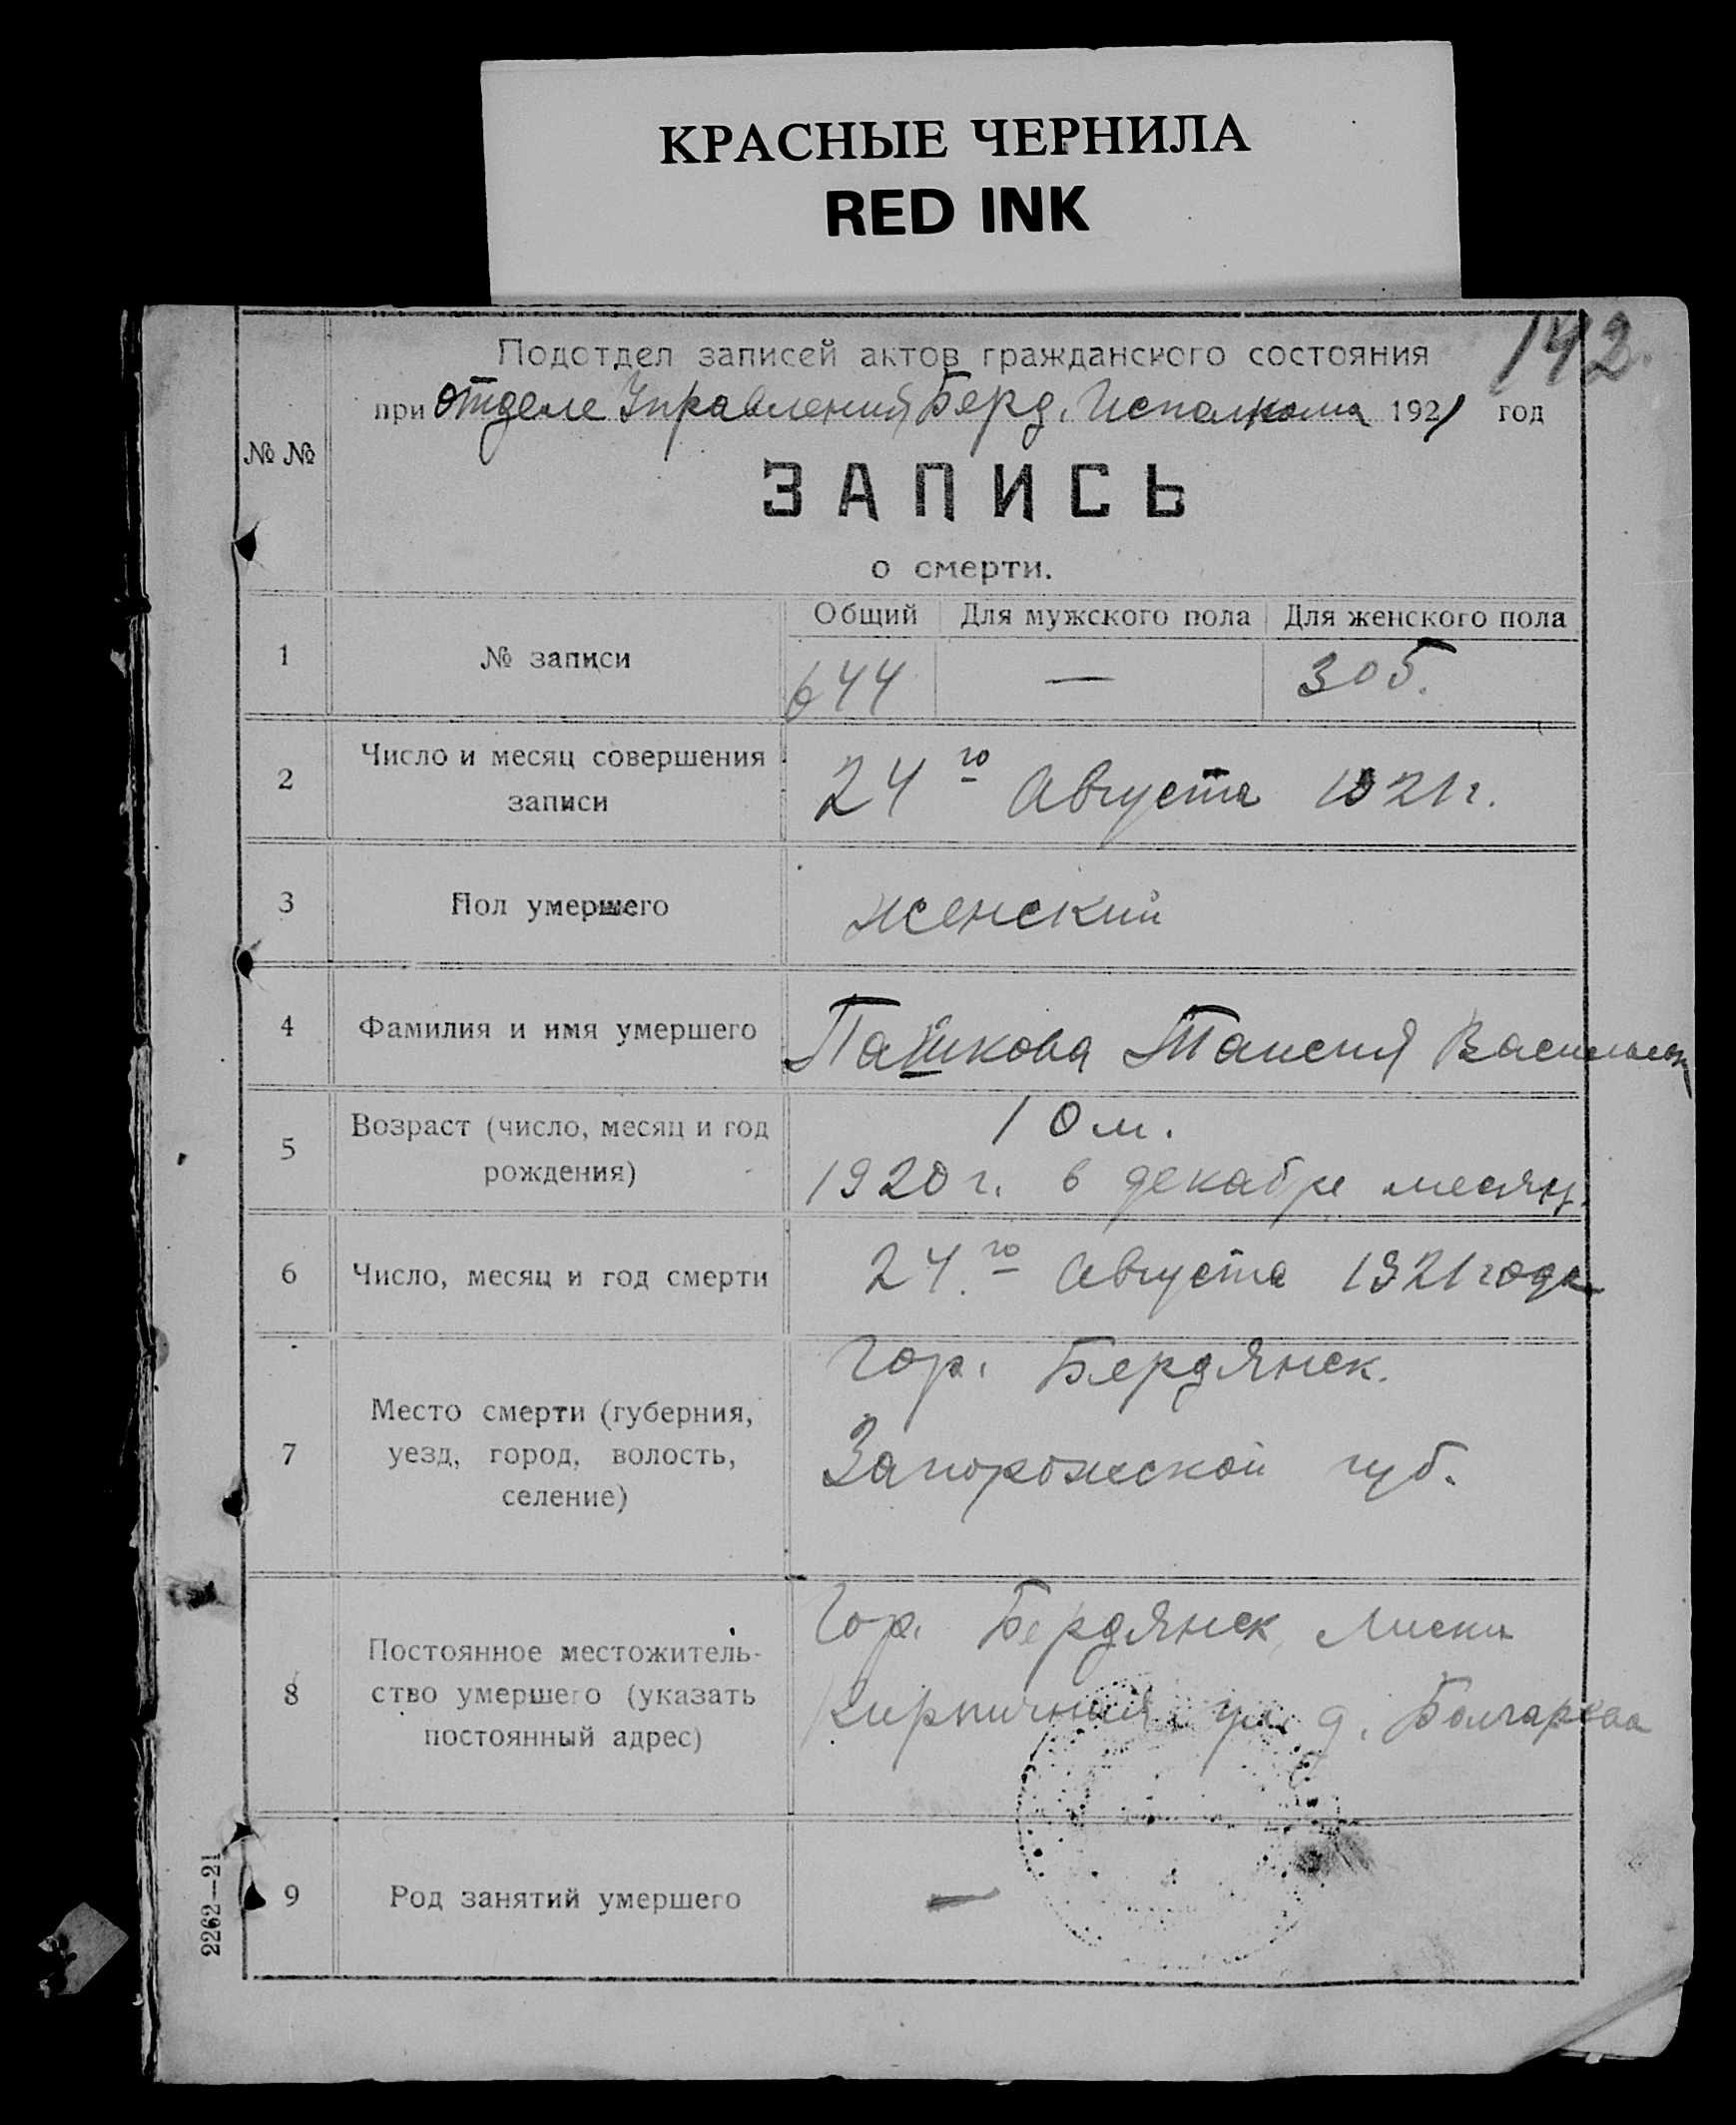 КРАСНЫЕ ЧЕРНИЛА
RED INK
142.
Подотдел записей актов гражданского состояния
при отделе Управления Берд. Исполкома 1921 год
№ №
ЗАПИСЬ
о смерти.
Общий Для мужского пола Для женского пола
1 № записи 644 — 305.
2 Число и месяц совершения
записи
24го Августа 1921 г.
3 Пол умершего женский
4 Фамилия и имя умершего Пашкова Таисия
5 Возраст (число, месяц и год
рождения)
10 м.
1920 г. в декабре месяц.
6 Число, месяц и год смерти 24.го Августа 1921 года
7 Место смерти (губерния,
уезд, город, волость,
селение)
Гор. Бердянск.
Запорожской губ.
8 Постоянное местожитель-
ство умершего (указать
постоянный адрес)
Гор. Бердянск, Лиски
Кирпичная ул. д.
9 Род занятий умершего —
2262—21